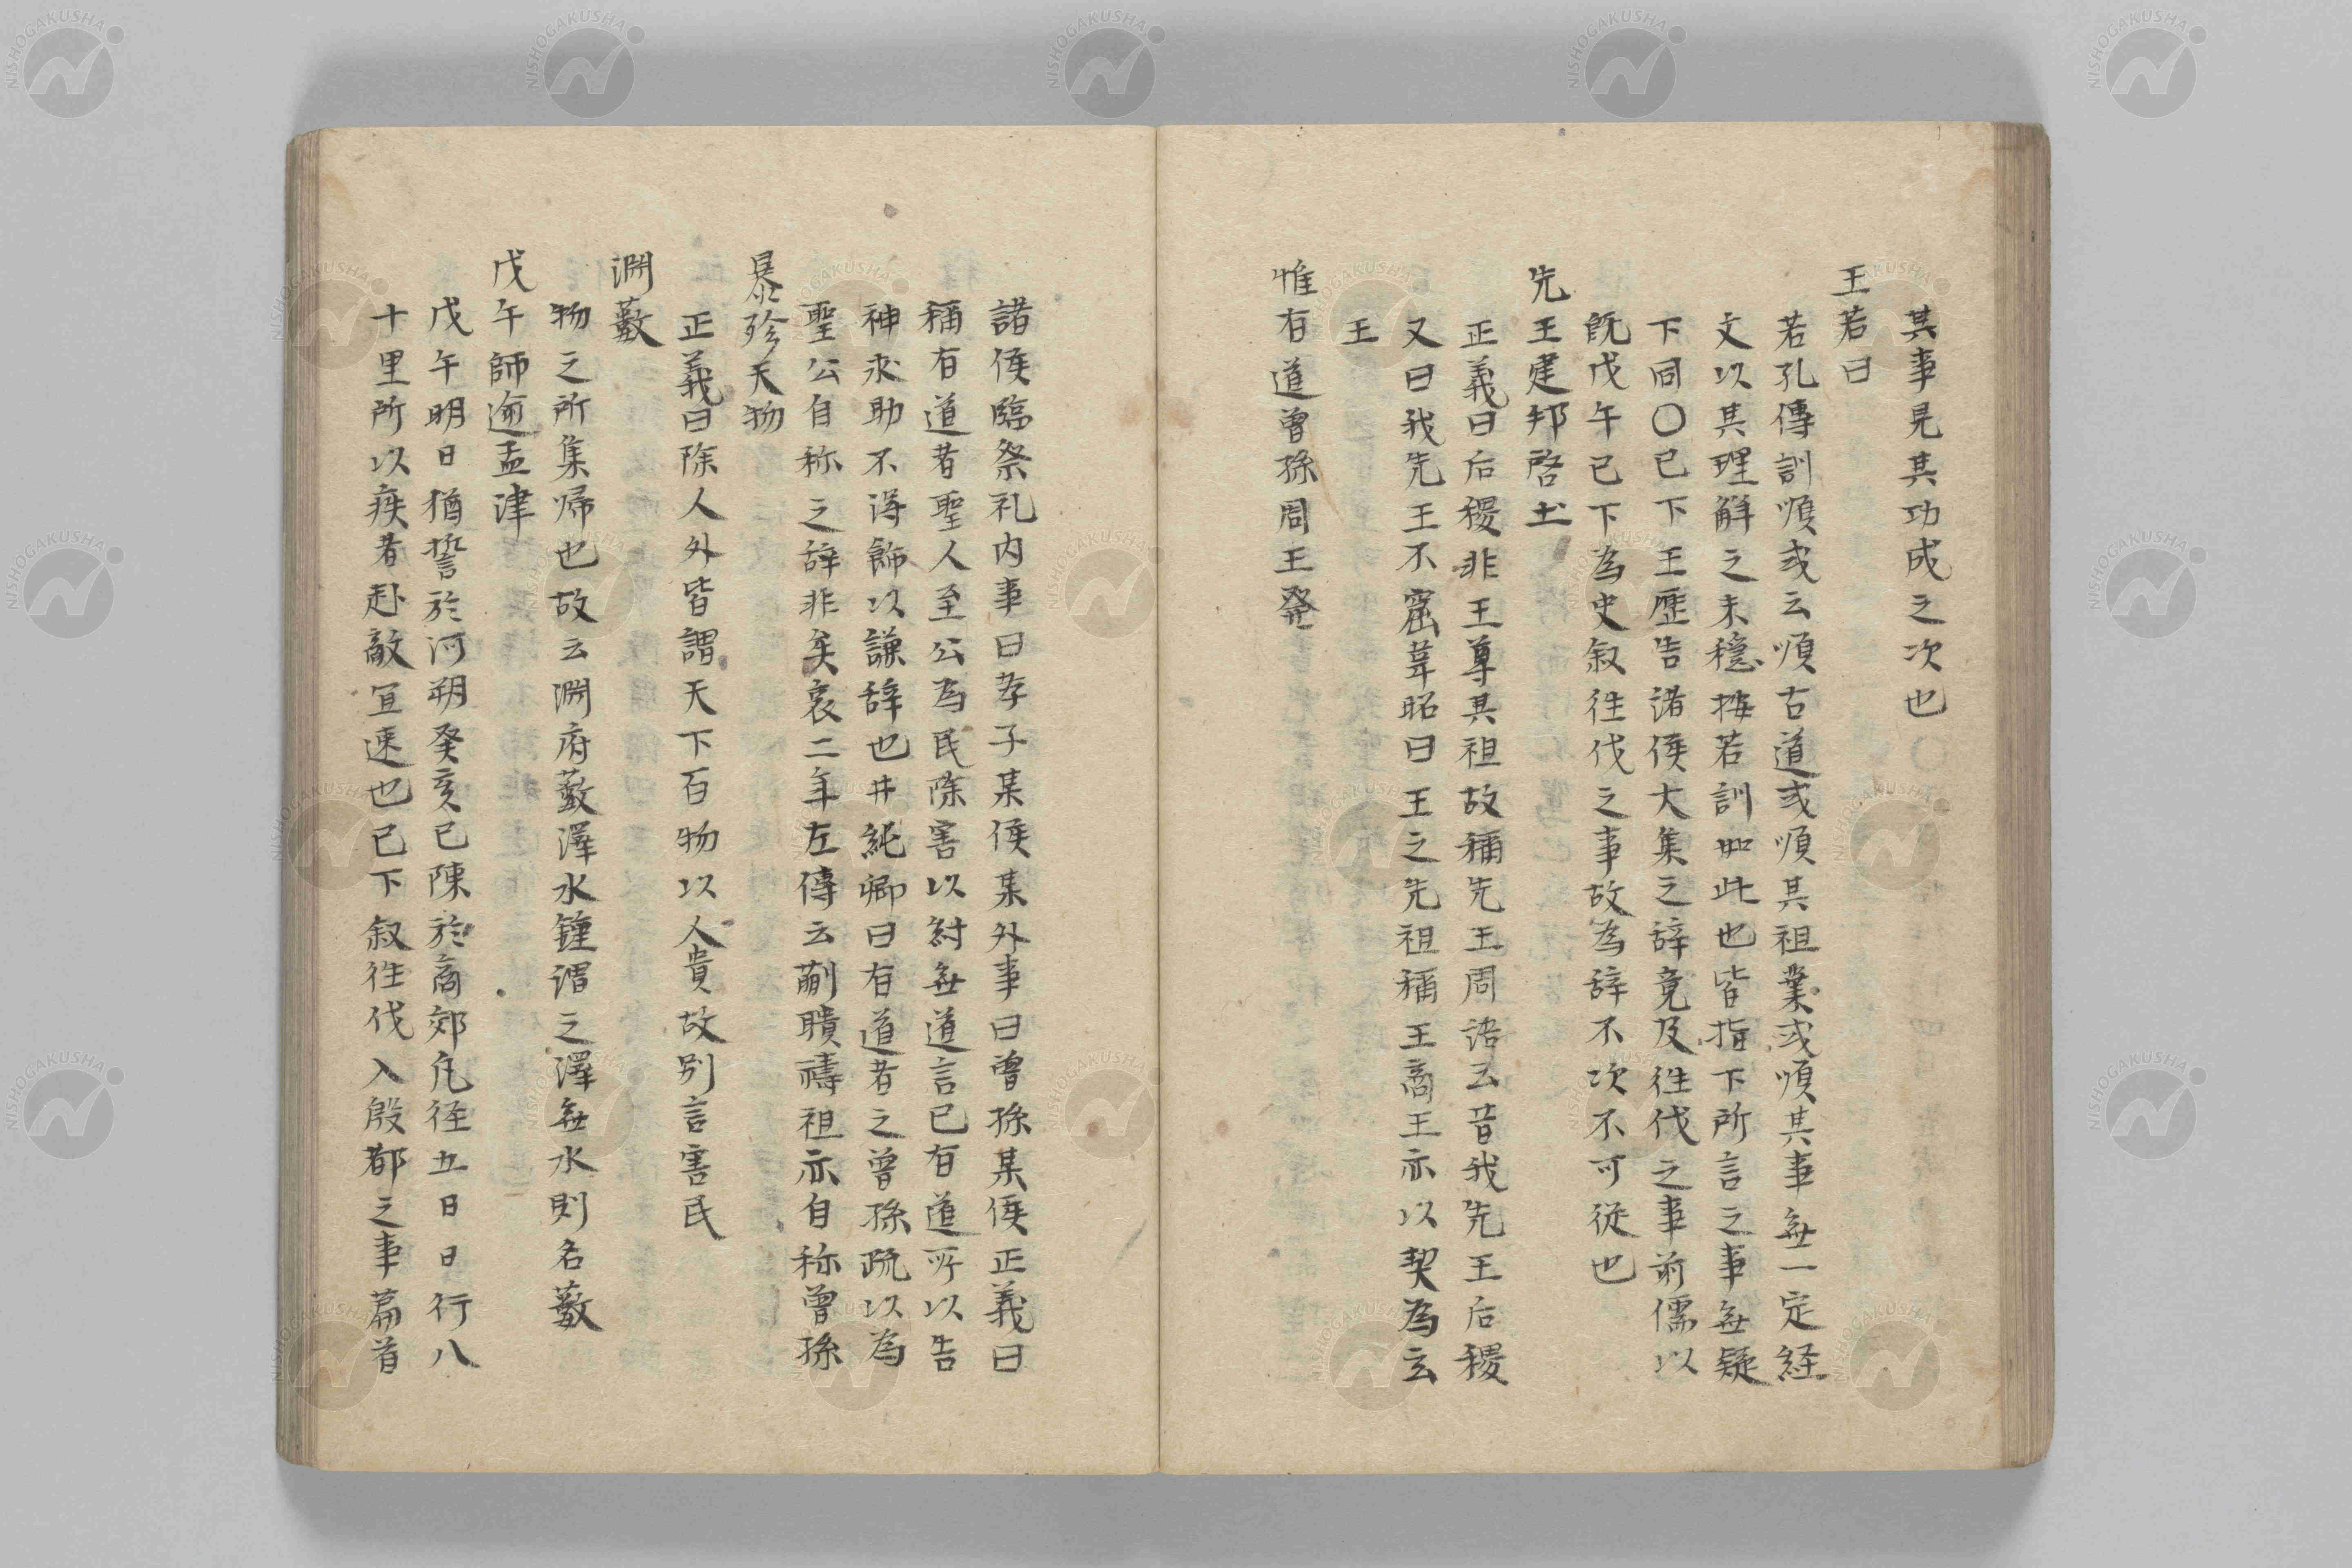 其事見其功成之次也
王若曰
若孔傳訓順或云順古道或順其祖業或順其事無一定経
文以其理解之未穏按若訓如此也皆指下所言之事無疑
下同〇已下王歷告諸侯大集之辞竟及徃伐之事前儒以
既戊午已下為史叙徃伐之事故為辞不次不可從也
先王建邦啓土
正義曰后稷非王尊其祖故稱先王周語云昔我先王后稷
又曰我先王不窋韋昭曰王之先祖稱王商王亦以契為玄
王
惟有道曽孫周王發
諸侯臨祭礼内事曰孝子某侯某外事曰曽孫某侯正義曰
稱有道者聖人至公為民除害以紂無道言己有道所以告
神求助不得飾以謙辞也井純卿曰有道者之曽孫疏以為
聖公自称之辞非矣哀二年左傳云蒯聵禱祖亦自称曽孫
暴殄天物
正義曰除人外皆謂天下百物以人貴故別言害民
淵藪
物之所集帰也故云淵府藪澤水鍾謂之澤無水則名藪
戊午師逾孟津
戊午明日猶誓於河朔癸亥已陳於商郊凡徑五日日行八
十里所以疾者赴敵宜速也已下叙徃伐入殷都之事篇首
NISHOGAKUSHA